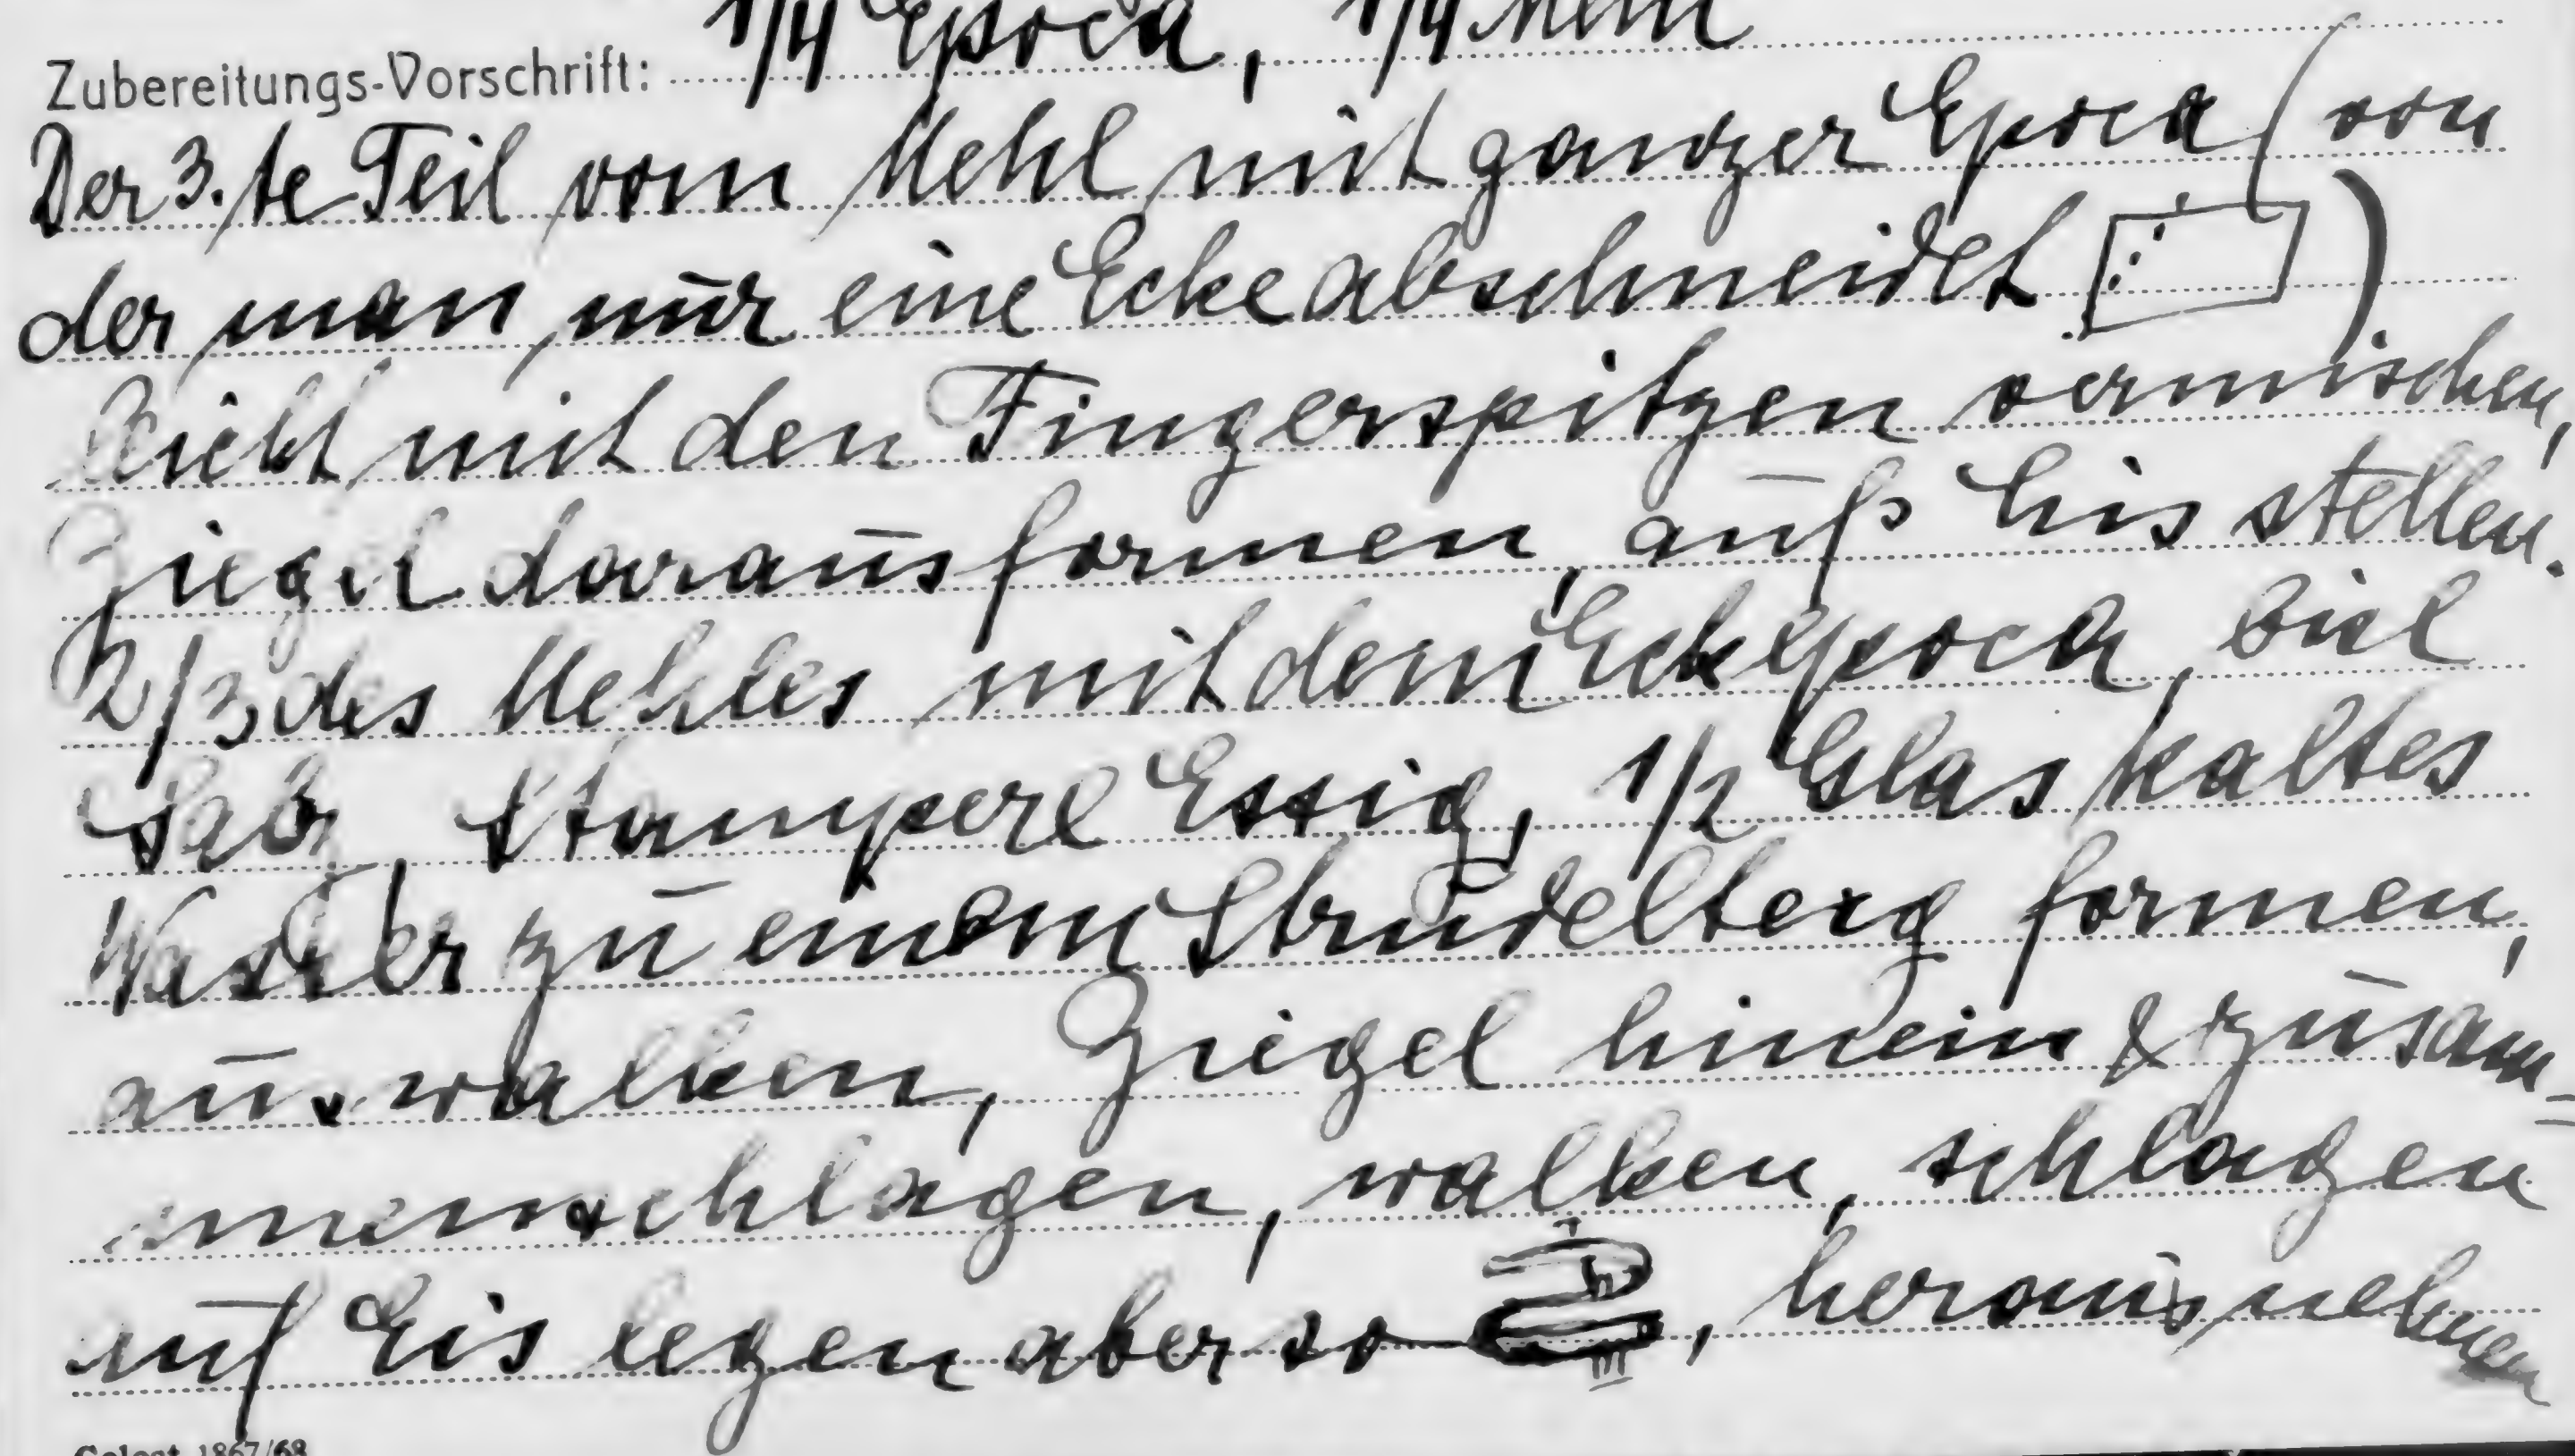 1/4 Epoca, 1/4 Mehl
Zubereitungs-Vorschrift:
Der 3.te Teil vom Mehl mit ganzer Epoca (von
der man nur eine Ecke abschneidet )
leicht mit den Fingerspitzen vermischen,
Ziegel daraus formen, aufs Eis stellen.
2/3 des Mehles mit dem Eckepoca, viel
Salz, Stamperl Essig, 1/2 Glas kaltes
Wasser zu einem Strudelteig formen,
auswalken, Ziegel hinein & zusam=
menschlagen, walken, schlagen
auf Eis legen aber so , herausnehmen
1867/68